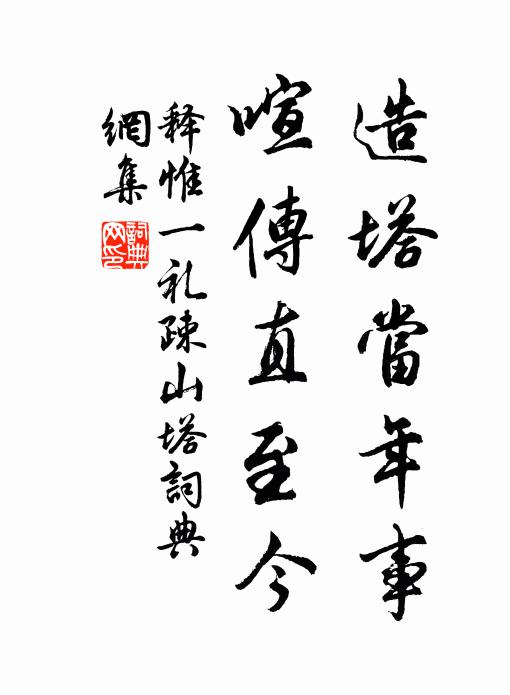 造塔當年事
喧傳直至今
释惟一礼疎山塔詞典
網集
詞典网印